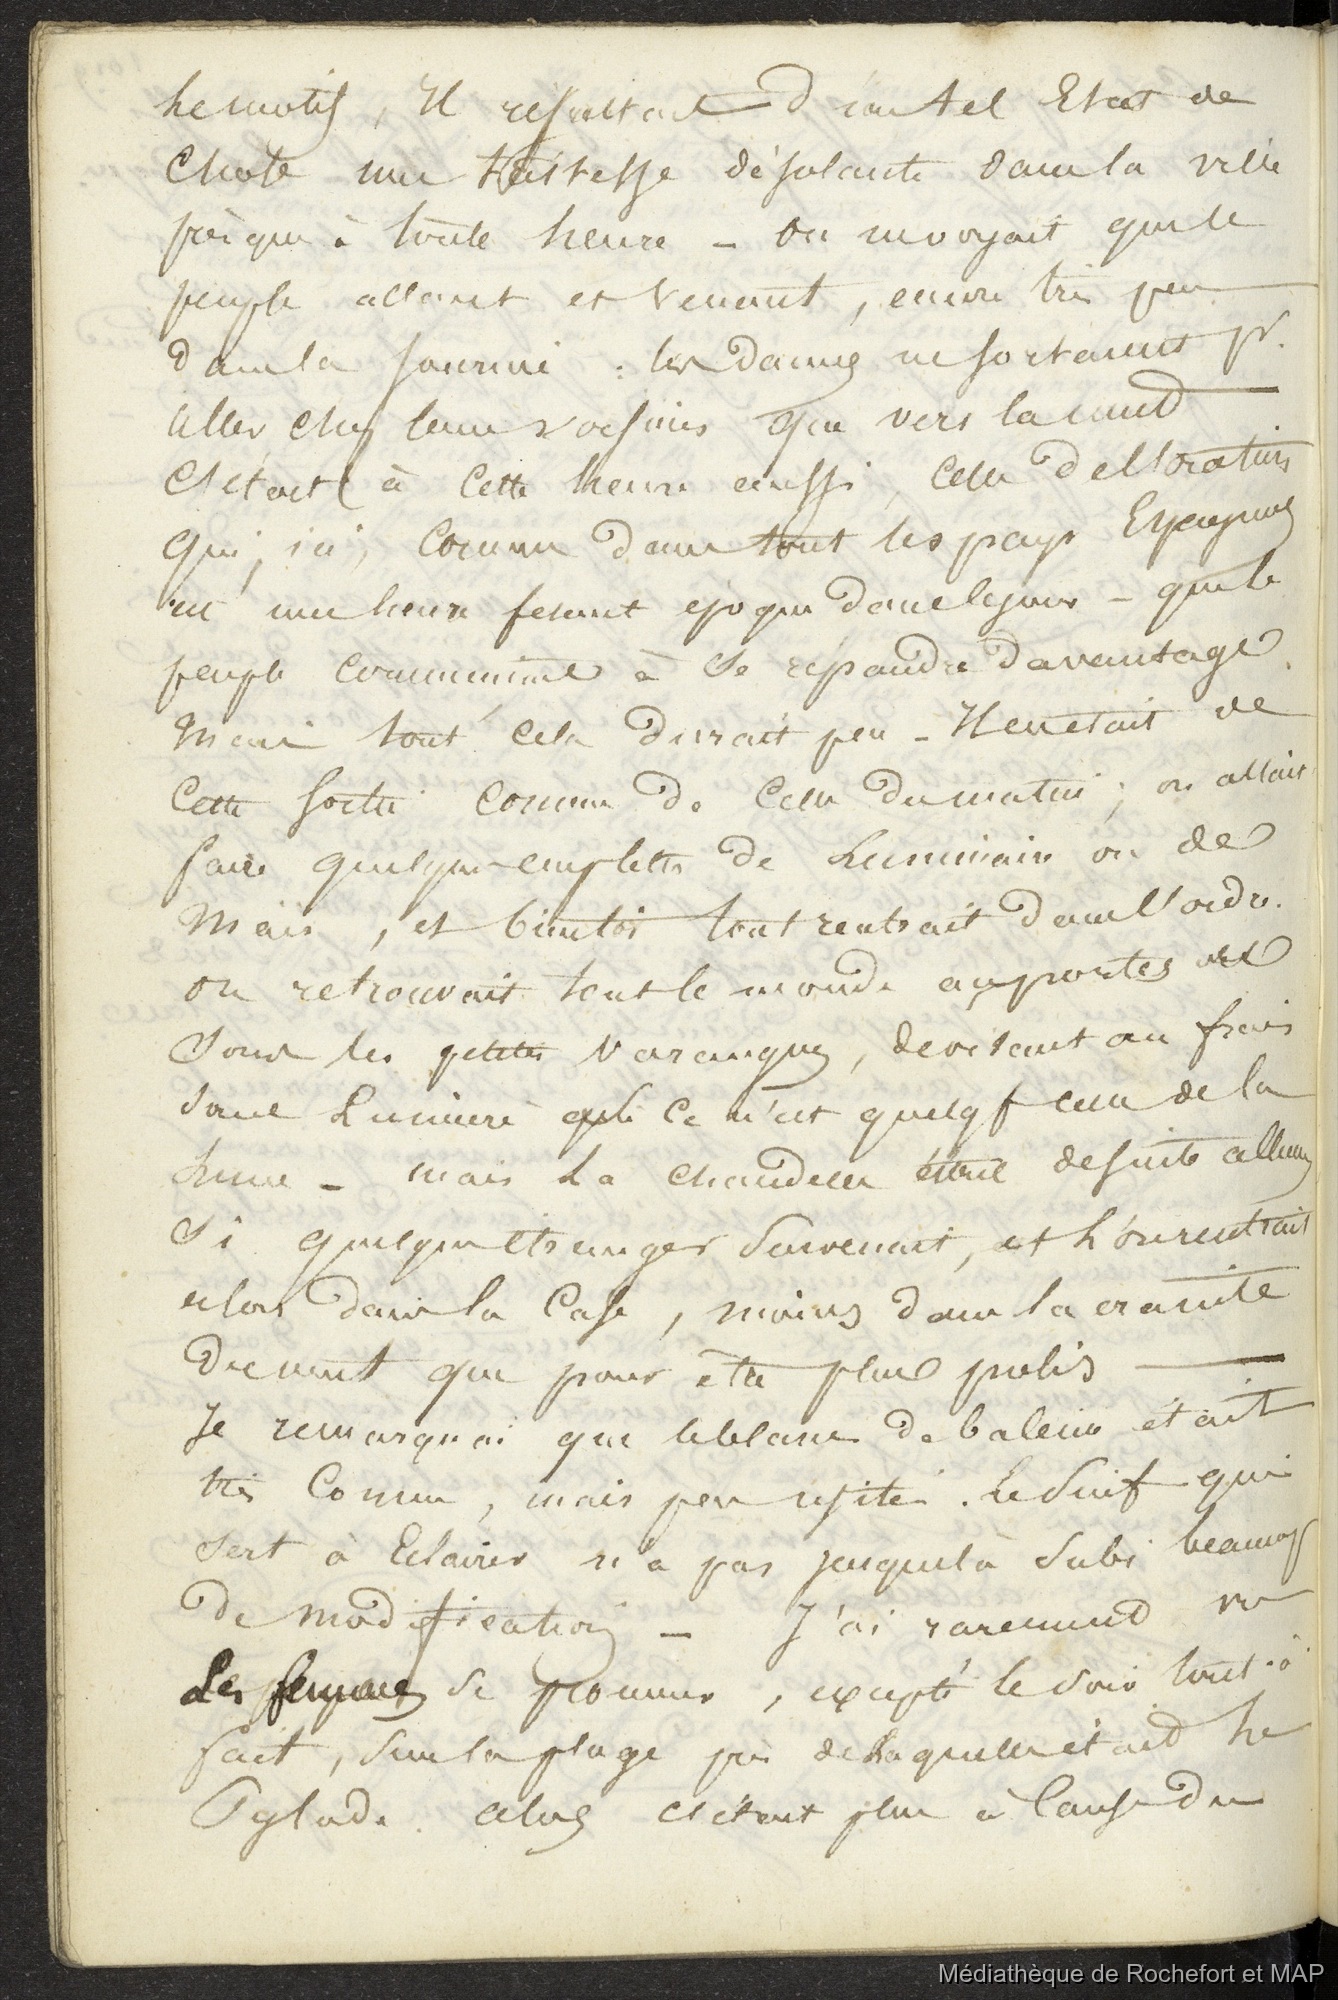 le motif, Il resultait d'un tel Etat de
chose une tristesse désolante dans la ville
presque à toute heure - on ne voyait que le
peuple allant et venant, encore très peu
dans la journée : les dames ne sortaient pr.
aller chez leurs voisins que vers la nuit
C'était à cette heure aussi, celle de l'oration
qui, ici, comme dans tout les pays Espagnols
est une heure fesant epoque dans le jour - que le
peuple commencait à se répandre davantage
Mais tout cela durait peu - Il en était de
cette sortie comme de celle du matin ; on allait
faire quelques emplettes de Luminaire ou de
Mais, et bientôt tout rentrait dans l'ordre.
on retrouvait tout le monde aux portes
sous les petites varangues, devisant au frais
sans Lumiere si ce n'est quelqf celle de la
Lune - mais La chandelle était de suite allumé
Si quelque Etranger survenait, et l'on rentrait
alors dans la Case, moins dans la crainte
du vent que pour être plus polis
Je remarquai que le blanc de baleine était
très Connu, mais peu usité. Le Suif qui
sert à Eclairer n'a pas jusque là subi beaucoup
de modification - J'ai rarement vu
Les femmes se promener, excepté le soir tout à
fait, sur la plage près de laquelle était le
alors c'était plus à cause du